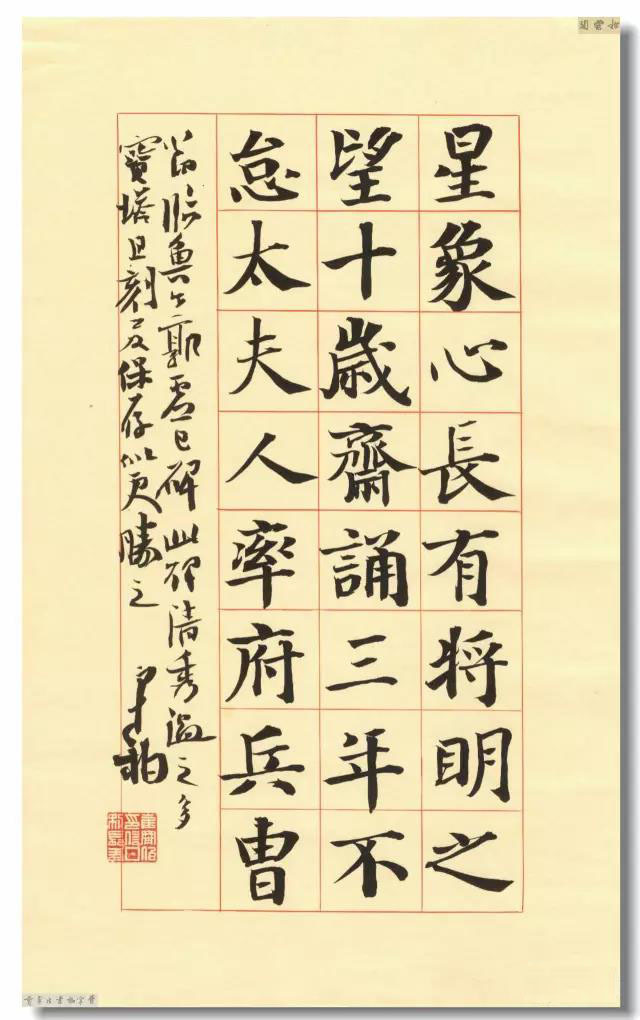 星象心長有将明之
望十歲齋誦三年不
怠太夫人率府兵曹
臨魯公郭虛己碑此碑清秀過之多
寶塔且刻及保存似更勝之